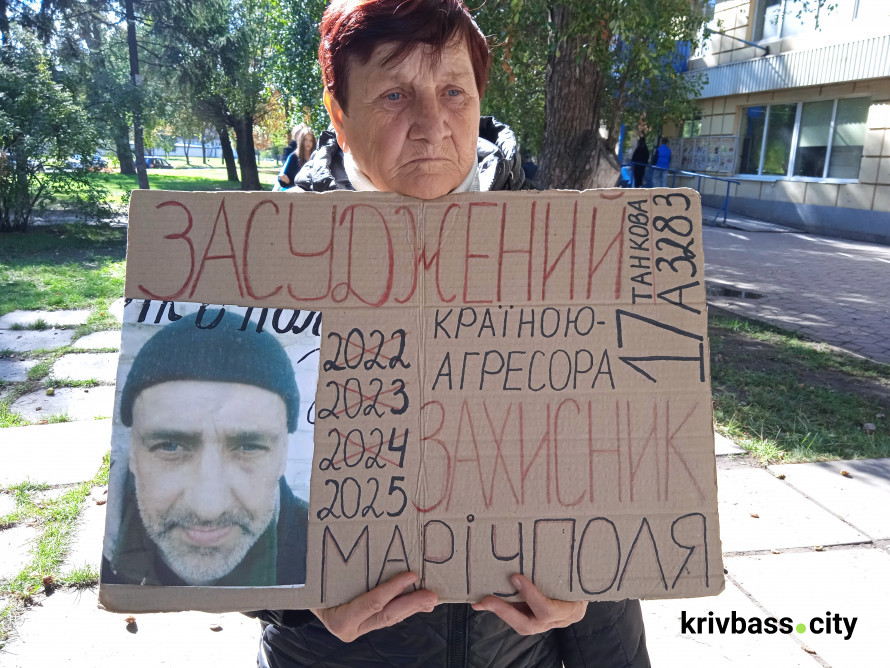 ЗАСУДЖЕНИЙ
17 ТАНКОВА
А3283
КРАЇНОЮ-
АГРЕСОРА
2022
2023
2024
2025
ЗАХИСНИК
МАРІУПОЛЯ
krivbass.city